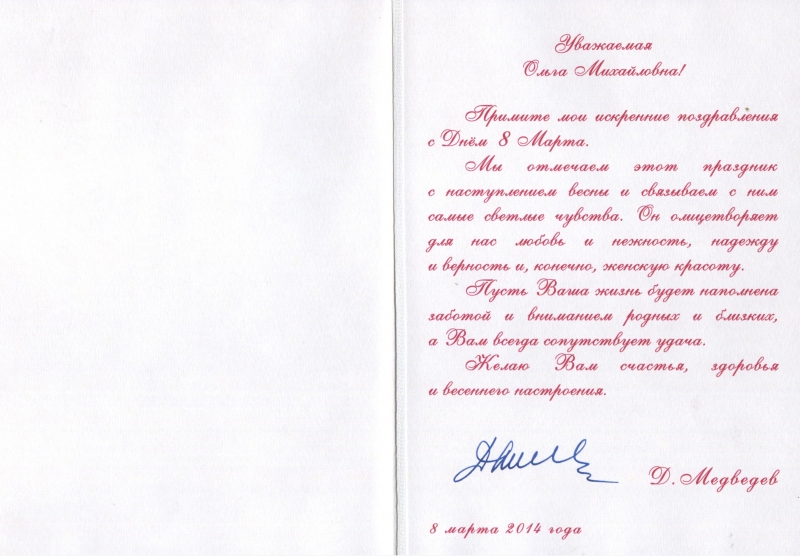 Уважаемая
Ольга Михайловна!
Примите мои искренние поздравления
с Днём 8 Марта.
Мы отмечаем этот праздник
с наступлением весны и связываем с ним
самые светлые чувства. Он олицетворяет
для нас любовь и нежность, надежду
и верность и, конечно, женскую красоту.
Пусть Ваша жизнь будет наполнена
заботой и вниманием родных и близких,
а Вам всегда сопутствует удача.
Желаю Вам счастья, здоровья
и весеннего настроения.
Д. Медведев
8 марта 2014 года